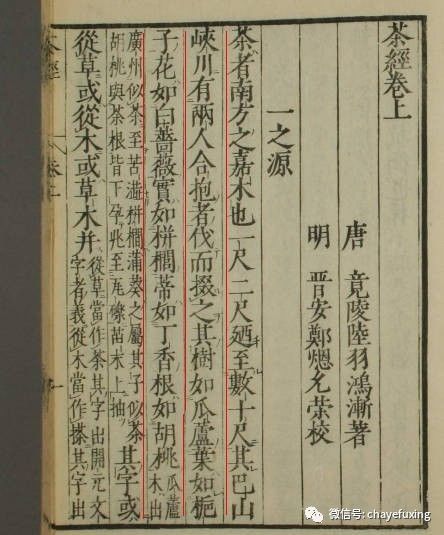 茶經卷上
唐 竟陵陸羽鴻漸著
明 晉安鄭熜允榮校
一之源
茶者南方之嘉木也一尺二尺廼至數十尺其巴山
峽川有兩人合抱者伐而掇之其樹如瓜蘆葉如梔
子花如白薔薇實如栟櫚蒂如丁香根如胡桃瓜蘆木出
廣州似茶至苦澁栟櫚蒲葵之屬其子似茶
胡桃與茶根皆下孕兆至瓦礫苗木上抽
其字或
從草或從木或草木并
從草當作茶其字出開元文
字者義從木當作搽其字出
茶經
卷上
微信号: chayefuxing